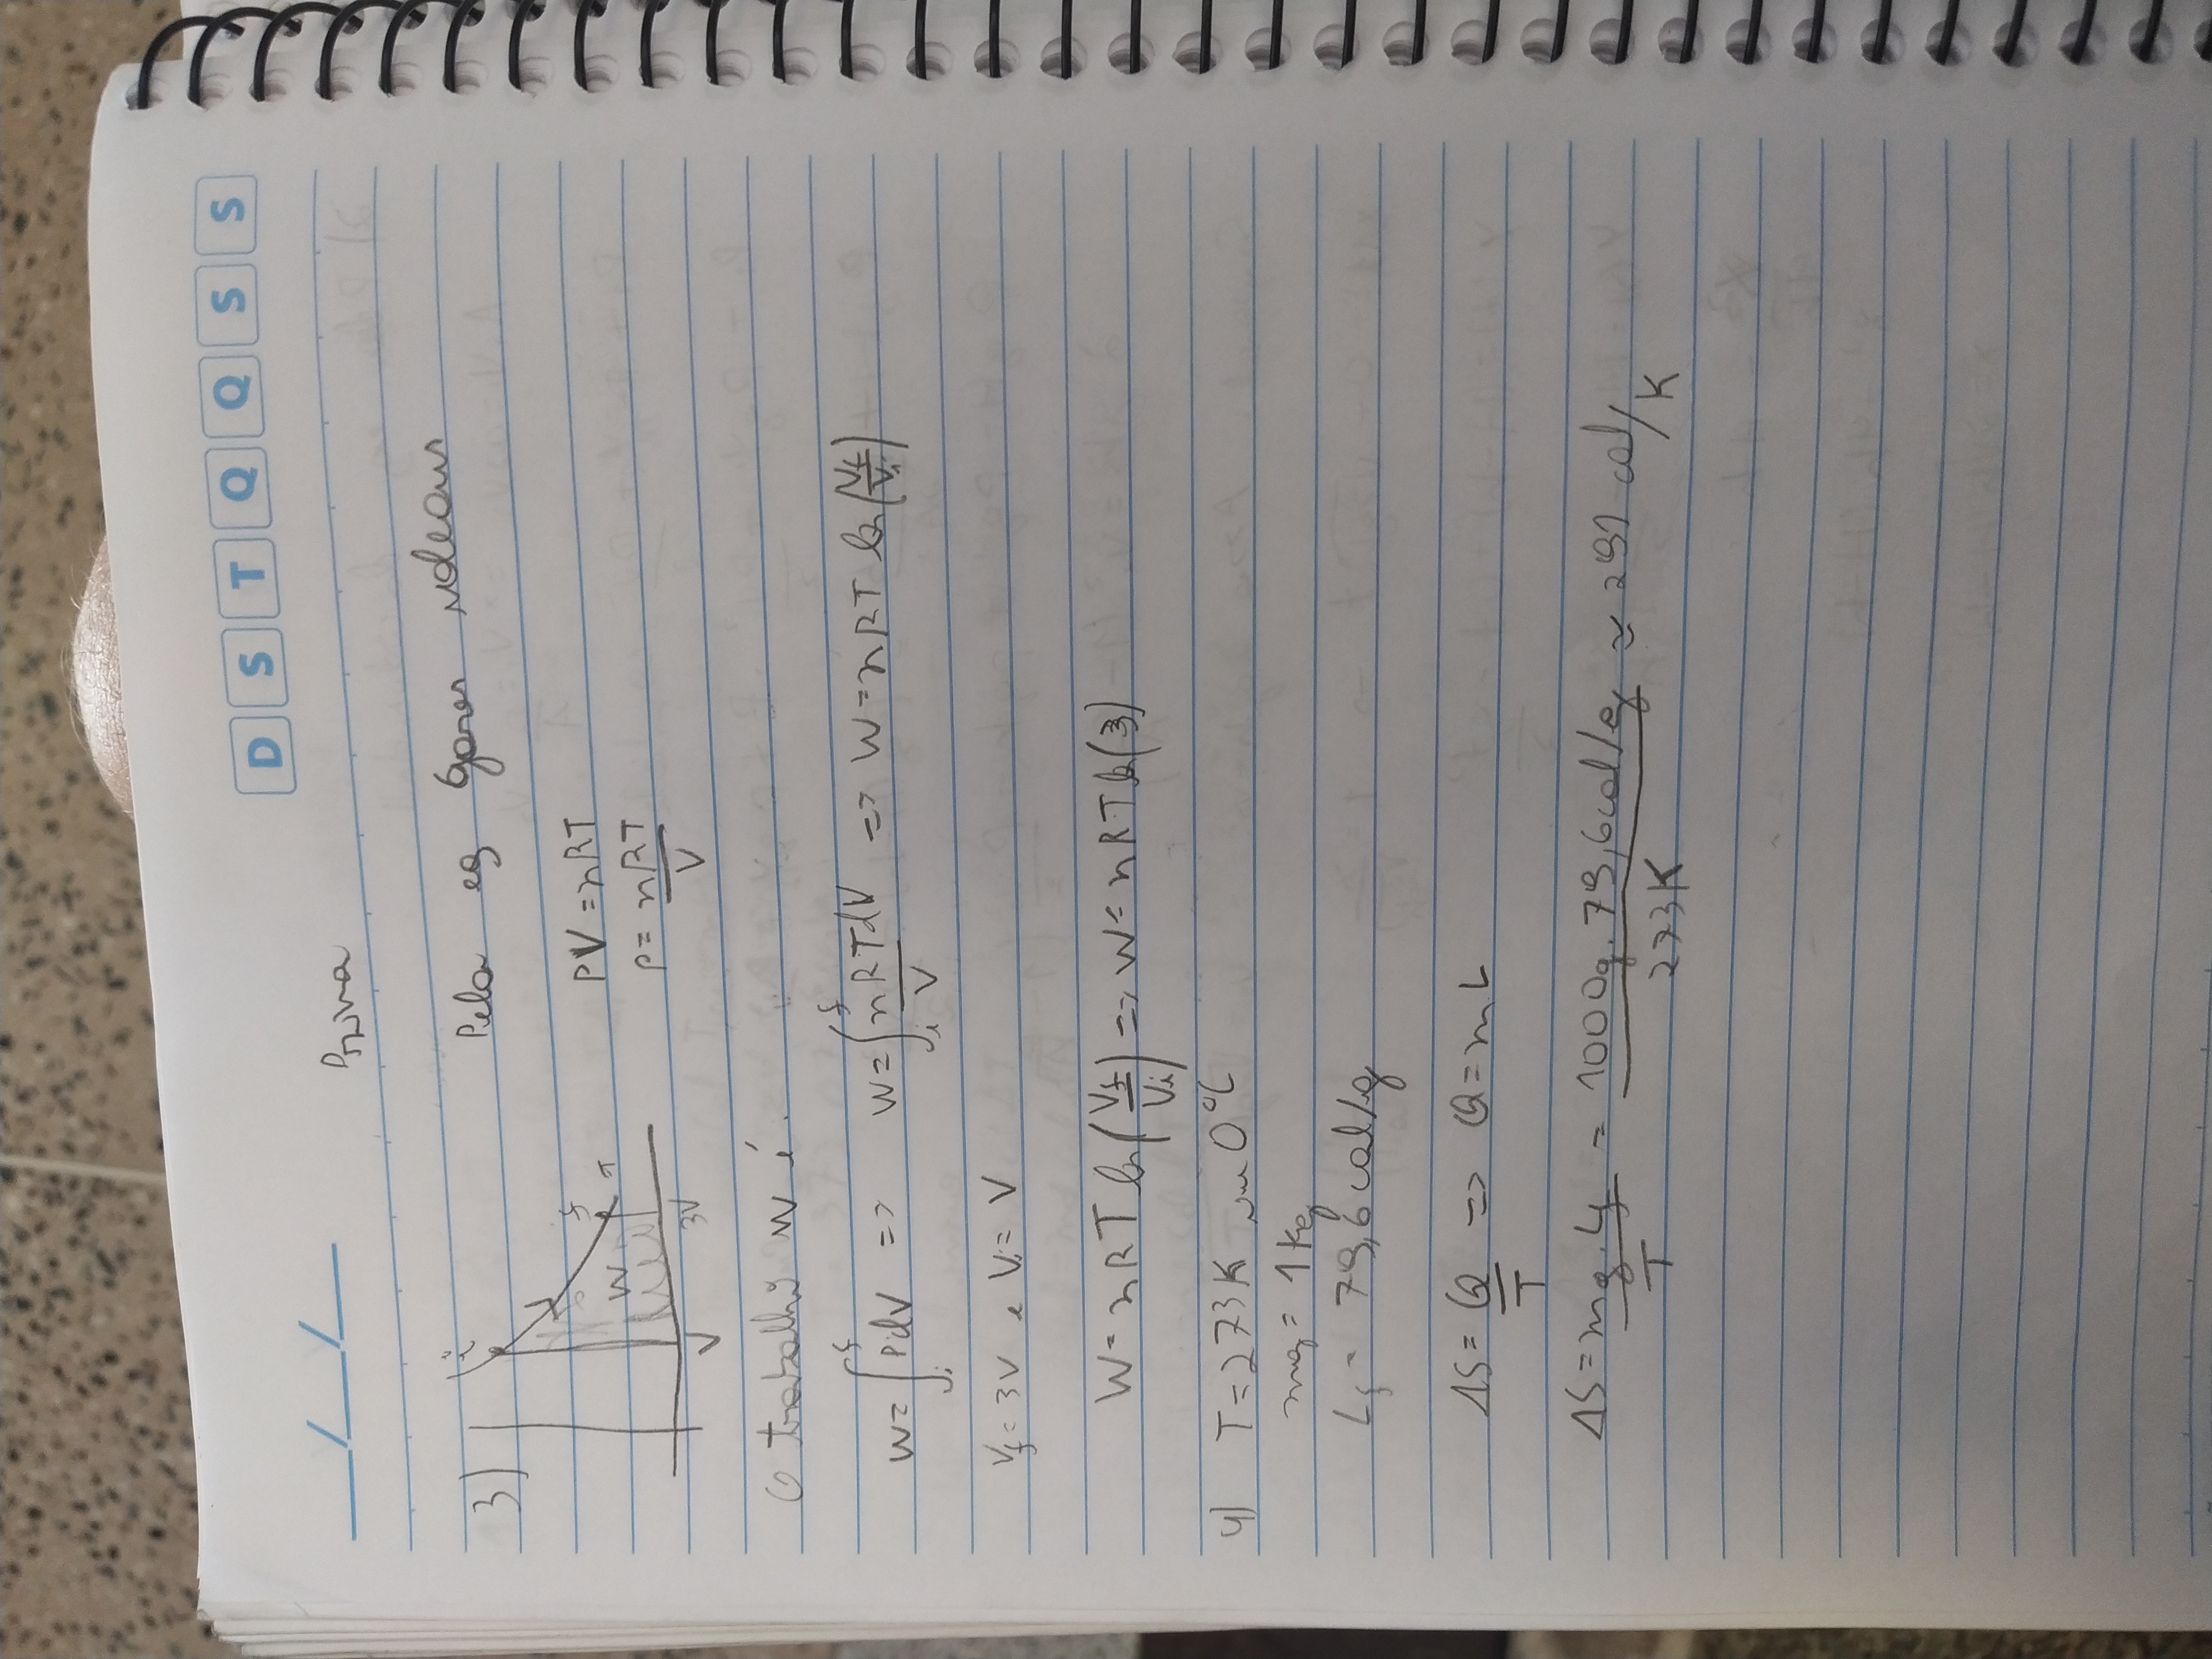 Prova
D S T Q Q S S
3) Pela eq gases ideais
i
f
T
W
V 3V
PV = nRT
P = nRT/V
O trabalho W é
W = ∫ᵢᶠ PdV => W = ∫ᵢᶠ nRTdV/V => W = nRT ln(Vf/Vi)
Vf = 3V e Vi = V
W = nRT ln(Vf/Vi) => W = nRT ln(3)
4) T = 273K ou 0°C
mg = 1kg
Lf = 79,6 cal/g
ΔS = Q/T => Q = mL
ΔS = mg.Lf/T = 1000g.79,6cal/g/273K ≈ 291 cal/K